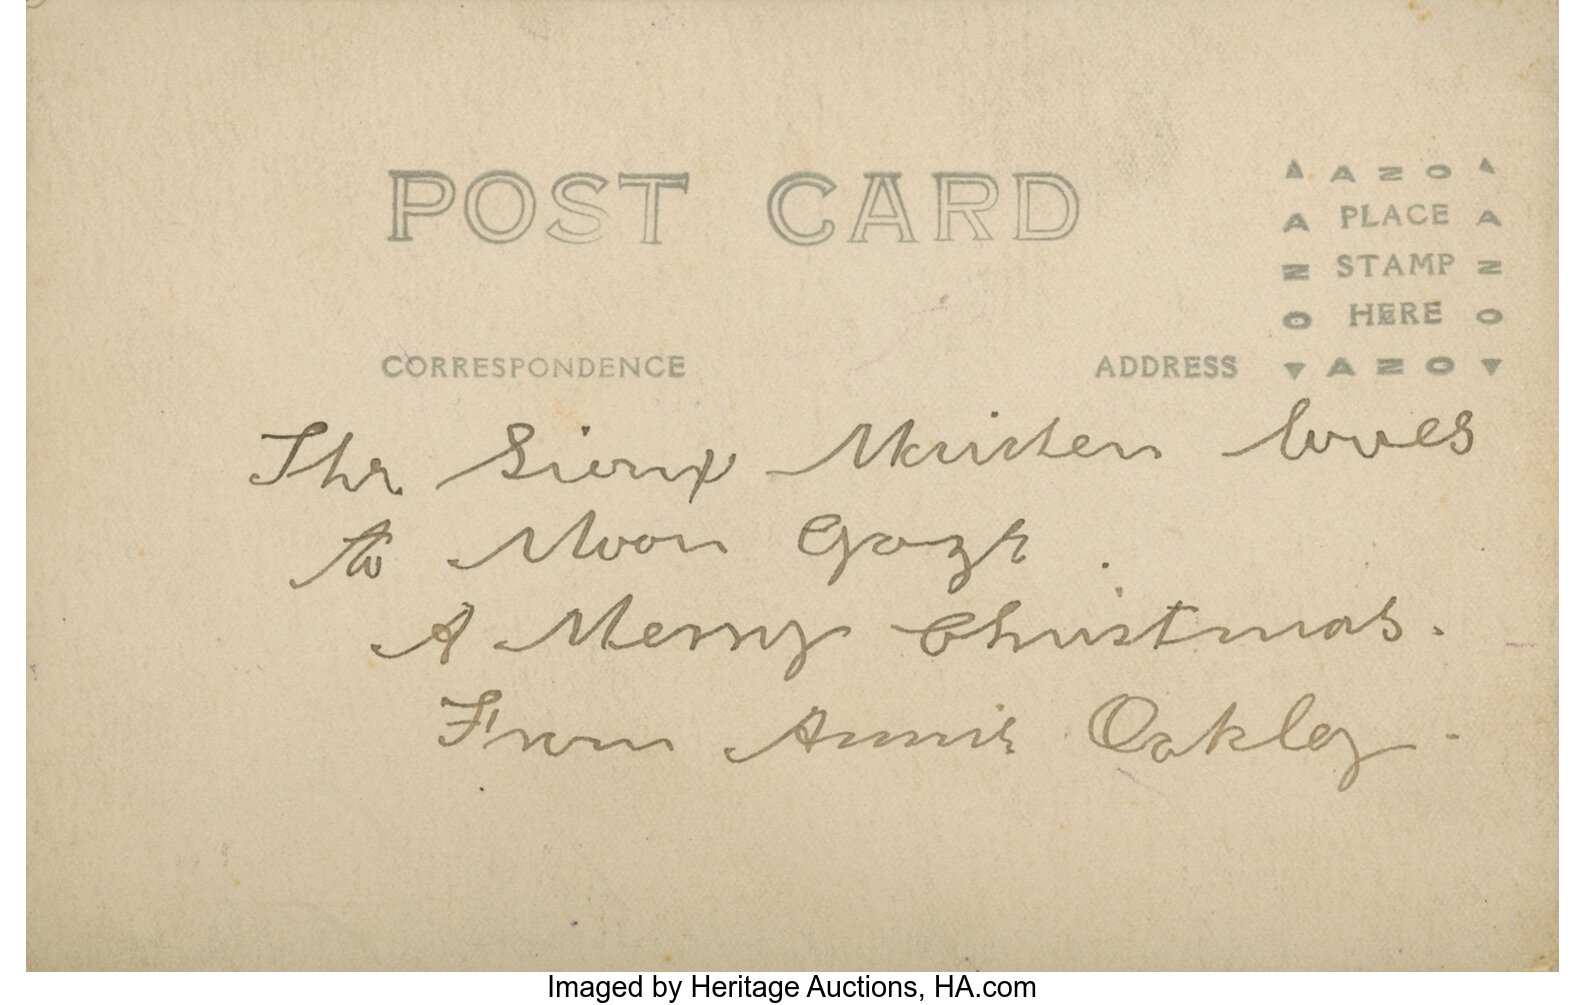 POST CARD
AZO
A PLACE A
Z STAMP Z
O HERE O
CORRESPONDENCE ADDRESS AZO
The Sioux Maiden loves
to Moon Gaze.
A Merry Christmas.
From Annie Oakley.
Imaged by Heritage Auctions, HA.com